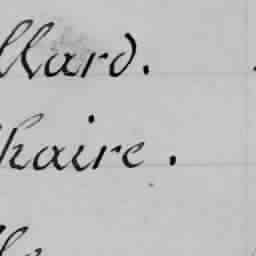 llard.
haire.